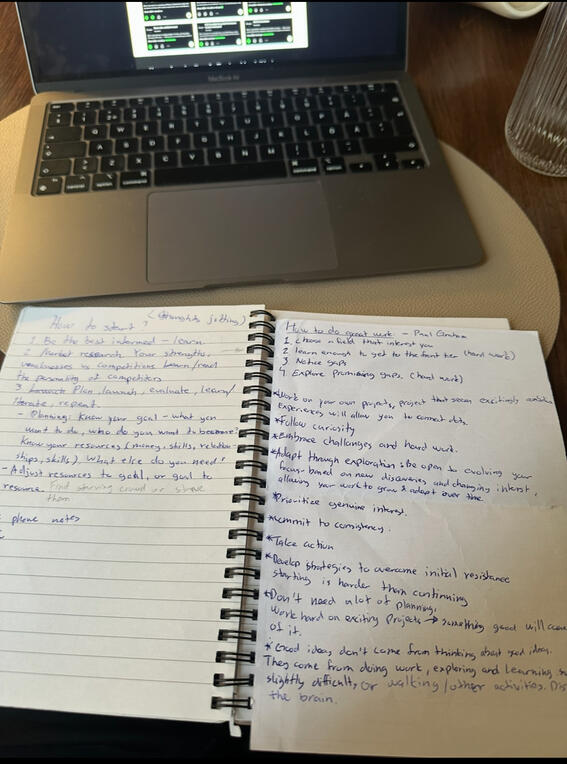 MacBook Air
How to start? (thoughts jotting)
1. Be the best informed - learn
2 Market research. Your strengths,
weaknesses vs competitions. Learn/read
the personality of competitors
3 Plan, launch, evaluate, learn/
iterate, repeat.
- Planning: Know your goal - what you
want to do, who do you want to become?
Know your resources (money, skills, relation-
ships, skills). What else do you need?
- Adjust resources to goal, or goal to
resource. Find starving crowd or
them
phone notes
How to do great work - Paul Graham
1. choose a field that interest you
2 learn enough to get to the frontier (hard work)
3 Notice gaps
4 Explore promising gaps. (hard work)
*Work on your own projects, project that seem excitingly
Experiences will allow you to connect dots.
*Follow curiosity
*Embrace challenges and hard work.
*Adapt through exploration & be open to evolving your
focus based on new discoveries and changing interest,
allowing your work to grow & adapt over time.
*Prioritize genuine interest.
*Commit to consistency.
*Take action
*Develop strategies to overcome initial resistance
starting is harder than continuing
*Don't need a lot of planning,
work hard on exciting projects → something good will come
of it.
*Good ideas don't come from thinking about good ideas.
They come from doing work, exploring and learning
slightly difficult, or walking/other activities.
the brain.